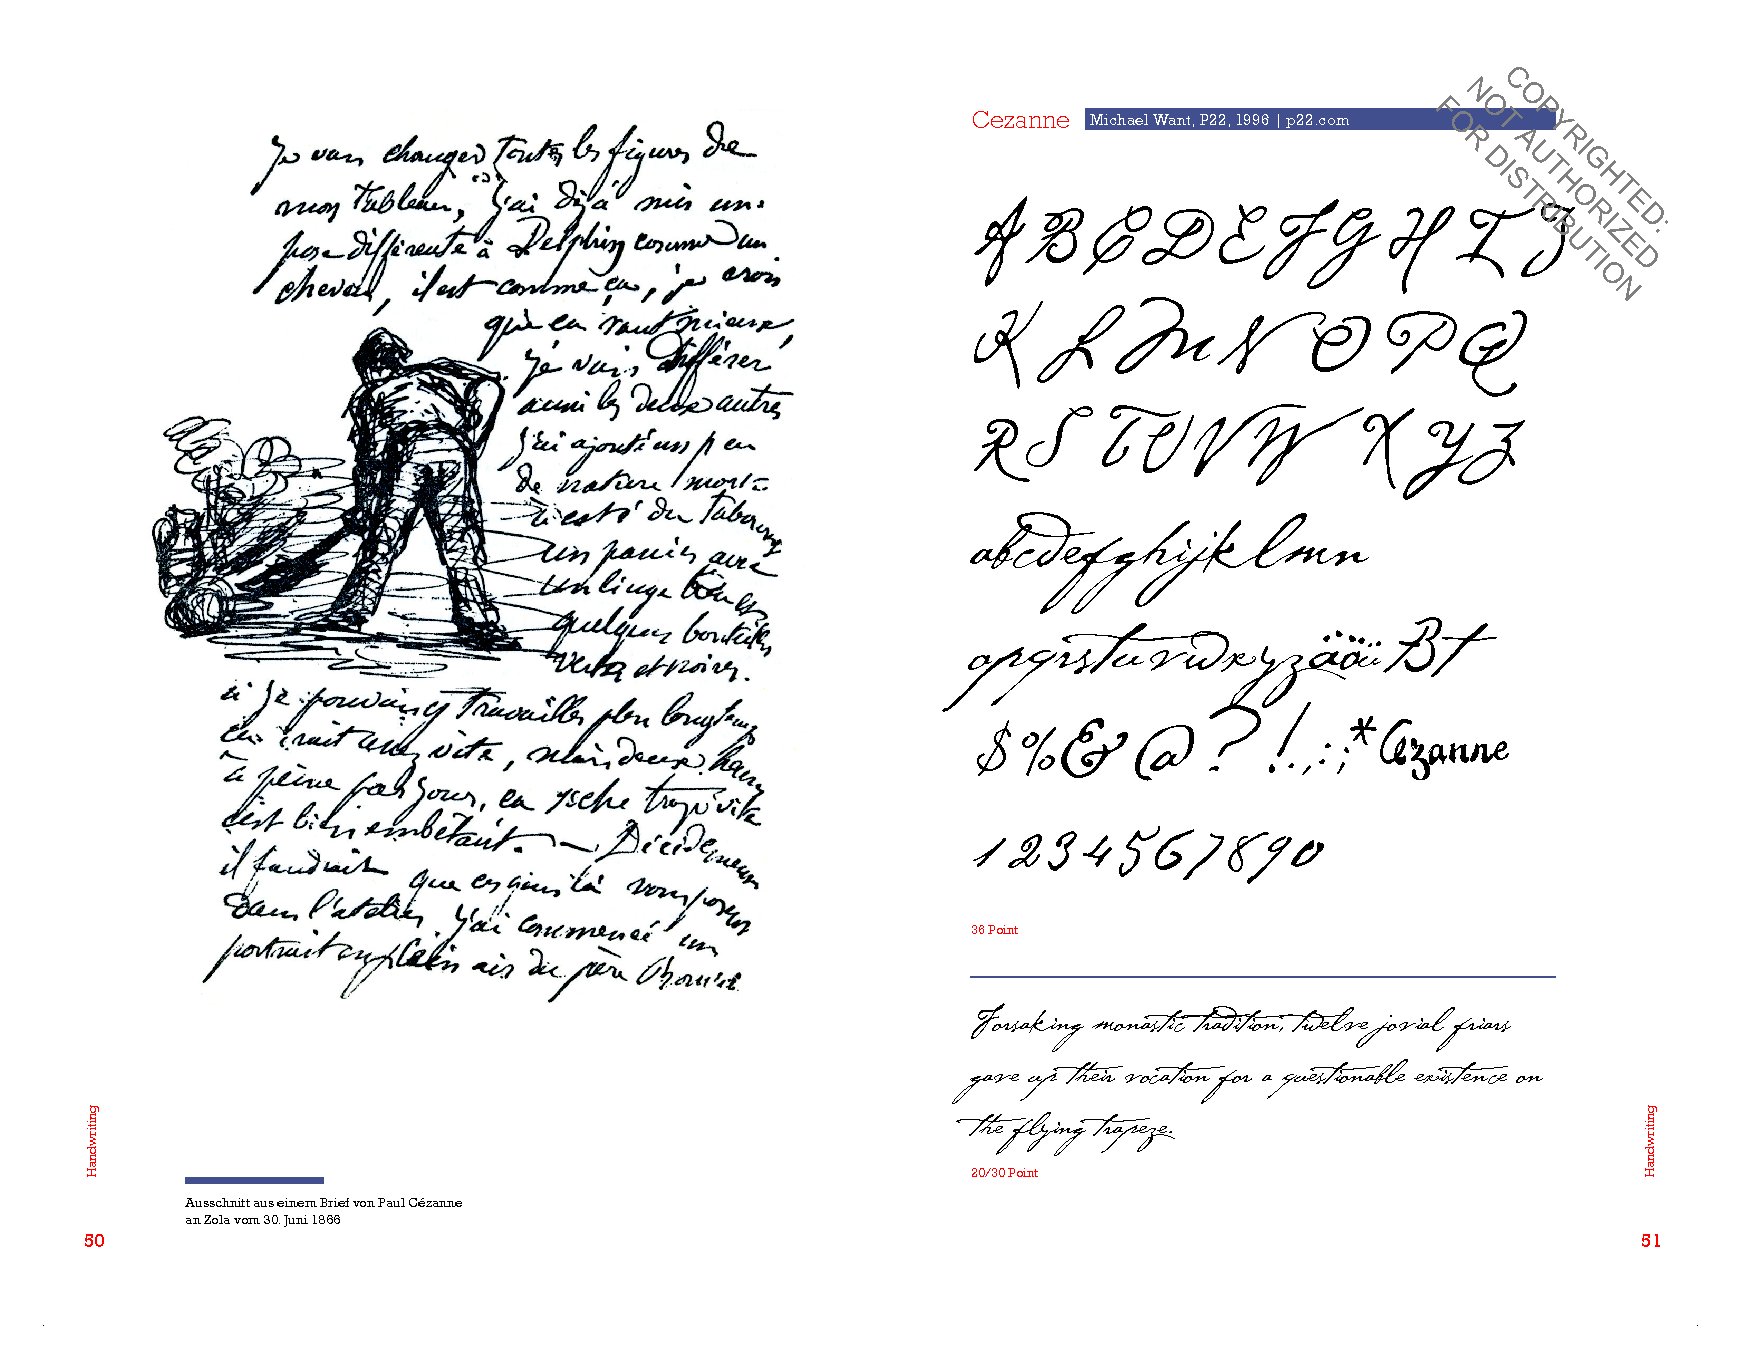 je vais changer toutes les figures de
mon tableau, j'ai déjà mis une
pose différente à Delphin comme un
cheveu, il est comme ça, je crois
que ça vaut mieux,
je vais différer
aussi les deux autres
j'ai ajouté un peu
de nature morte
à côté du tabouret
un panier avec
un linge bleu et
quelques bouteilles
vertes et noires.
si je pouvais y travailler plus longtemps
ça irait assez vite, mais deux heures
à peine par jour, ça sèche trop vite
c'est bien embêtant. — Décidément
il faudrait que ces gens là vous posent
dans l'atelier. j'ai commencé un
portrait en plein air du père
Ausschnitt aus einem Brief von Paul Cézanne
an Zola vom 30. Juni 1866
Handwriting
50
Cezanne Michael Want, P22, 1996 | p22.com
COPYRIGHTED:
NOT AUTHORIZED
FOR DISTRIBUTION
A B C D E F G H I J
K L M N O P Q
R S T U V W X Y Z
abcdefghijklmn
opqrstuvwxyzäöü ß†
$%&@?!.,:;*Cézanne
1234567890
36 Point
Forsaking monastic tradition, twelve jovial friars
gave up their vocation for a questionable existence on
the flying trapeze.
20/30 Point
Handwriting
51